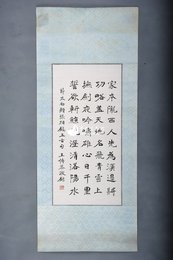 家本隴西人先為漢邊將
功略蓋天地名飛青雲上
撫劍夜吟嘯雄心日千里
誓欲斬鯨鯢澄清洛陽水